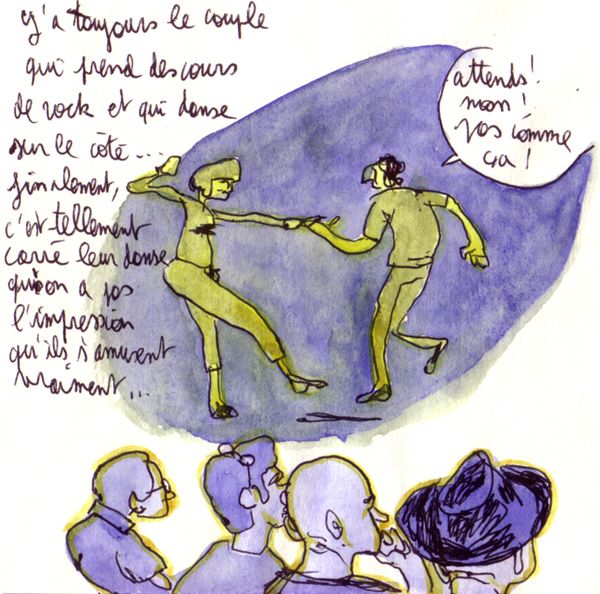 y'a toujours le couple
qui prend des cours
de rock et qui danse
sur le côté...
finalement,
c'est tellement
carré leur danse
qu'on a pas
l'impression
qu'ils s'amusent
vraiment...
attends!
non!
pas comme
ça!